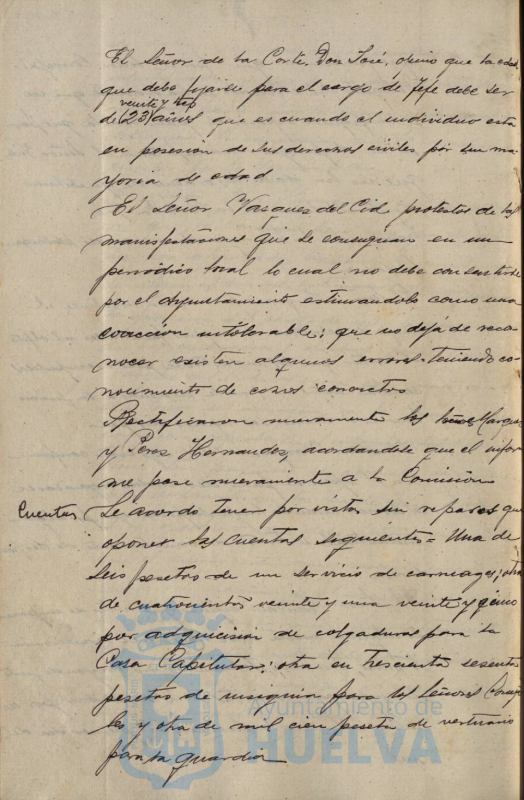 El Señor de la Corte, Don José, opino que la edad
que debe fijarse para el cargo de Jefe debe ser
veinte y tres
de (23) años que es cuando el individuo está
en posesion de sus derechos civiles por su ma-
yoria de edad
El Señor Vazquez del Cid protesta de las
manifestaciones que se consignan en un
periódico local lo cual no debe consentirse
por el Ayuntamiento estimandolo como una
coaccion intolerable; que no deja de reco-
nocer existen algunos errores teniendo co-
nocimiento de casos concretos
Rectificaron nuevamente los Señores Marquez
y Perez Hernandez, acordandose que el infor-
me pase nuevamente a la Comisión
Cuentas
Se acordo tener por vistas sin reparos que
oponer las cuentas siguientes = Una de
seis pesetas de un servicio de carruages; otra
de cuatrocientas veinte y una veinte y cinco
por adquicision de colgaduras para la
Casa Capitular; otra en trescientas sesenta
pesetas de insignia para los Señores
y otra de mil cien peseta de vestuario
para la guardia
Ayuntamiento de
HUELVA